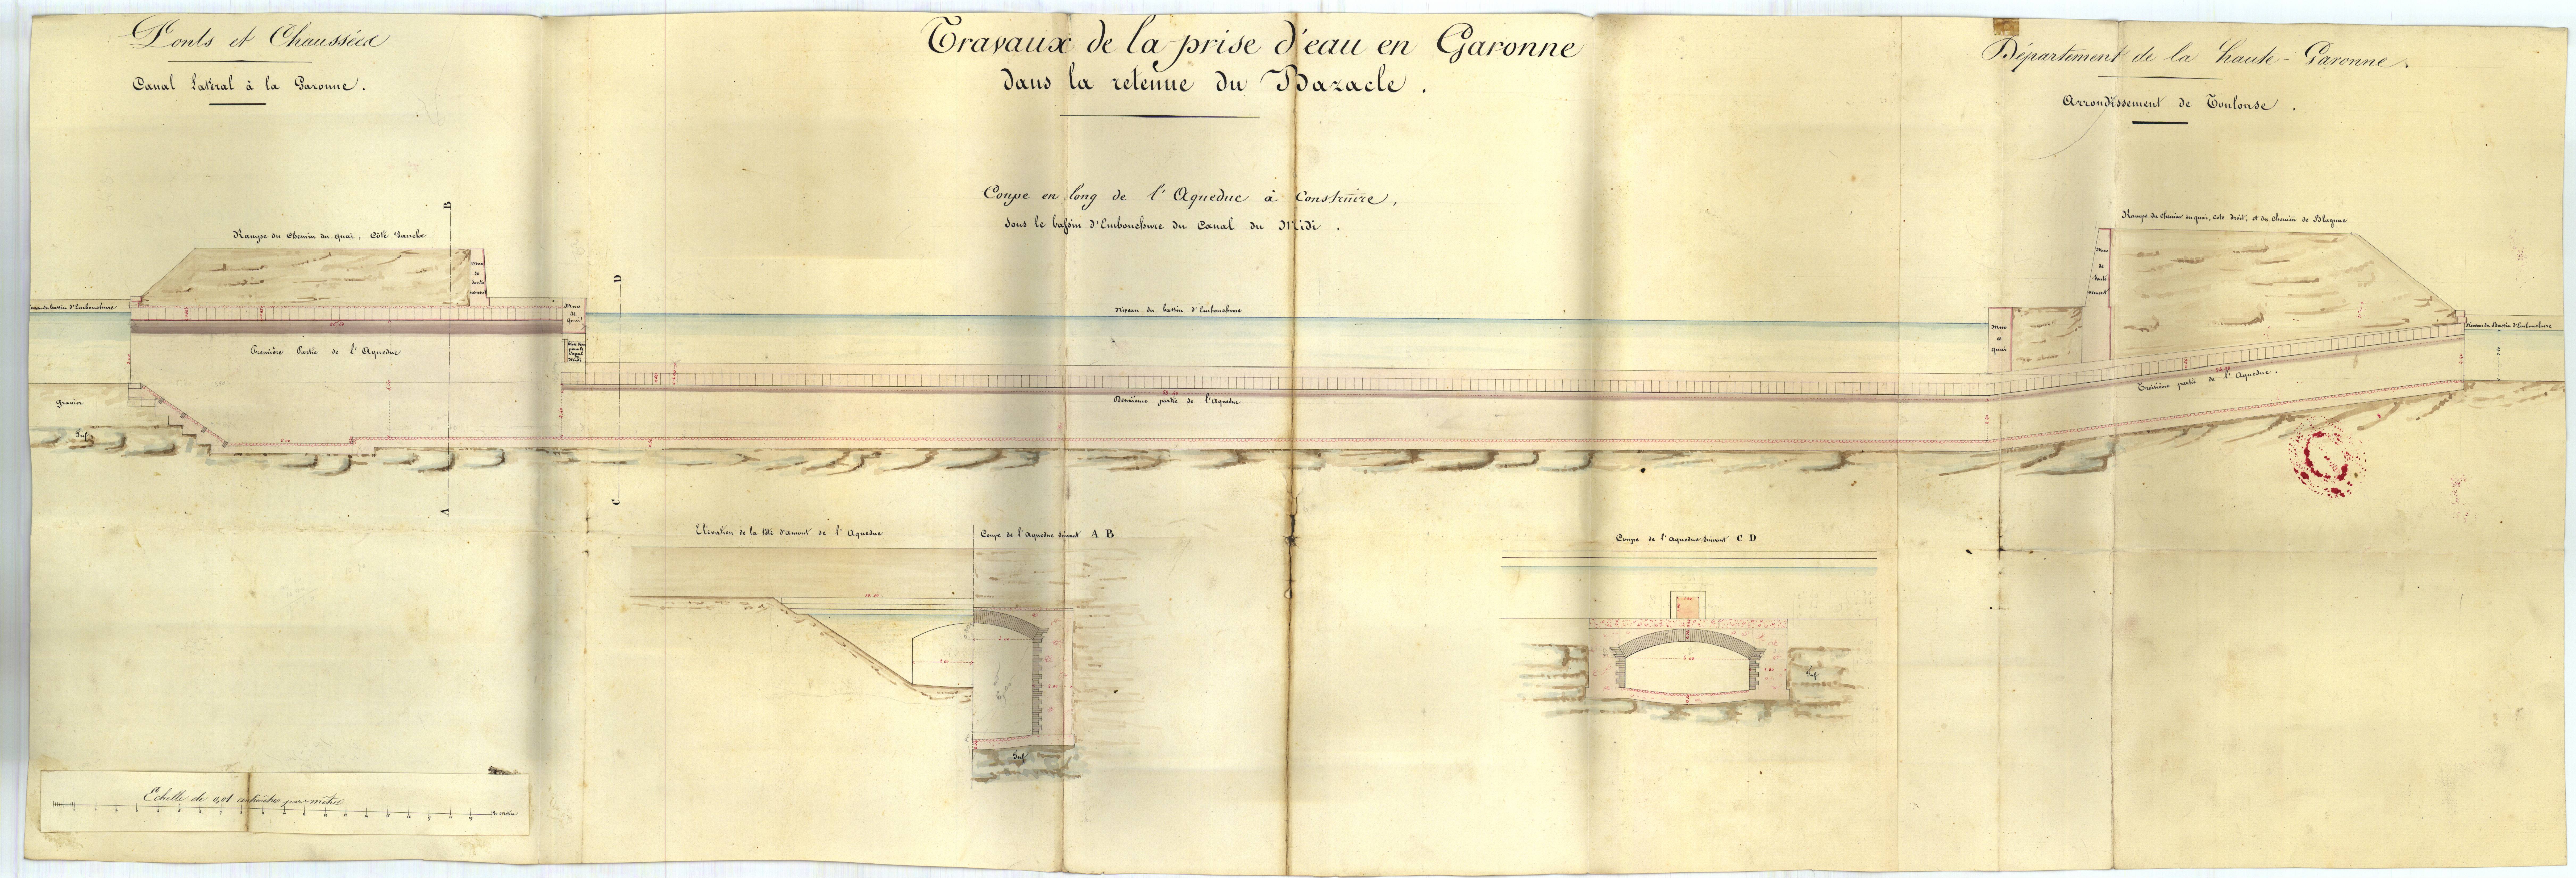 Ponts et Chaussées
Canal Latéral à la Garonne.
Travaux de la prise d'eau en Garonne
dans la retenue du Bazacle.
Département de la haute-Garonne.
Arrondissement de Toulouse.
Coupe en long de l'Aqueduc à Construire,
sous le bassin d'Embouchure du Canal du Midi.
Rampe du Chemin du quai, Côté Gauche
B
Mur
de
soute
nement
D
Rampe du chemin du quai, coté droit, et du chemin de Blagnac
Mur
de
soute
nement
du bassin d'Embouchure
Mur
de
quai
Niveau du bassin d'Embouchure
Mur
de
quai
Niveau du Bassin d'Embouchure
Première Partie de l'Aqueduc
Deuxième partie de l'Aqueduc
Troisième partie de l'Aqueduc.
Gravier
Tuf
A
C
Elévation de la tête d'amont de l'Aqueduc
Coupe de l'Aqueduc suivant A B
Coupe de l'Aqueduc suivant C D
Tuf
Tuf
Echelle de 0,01 centimètre par mètre